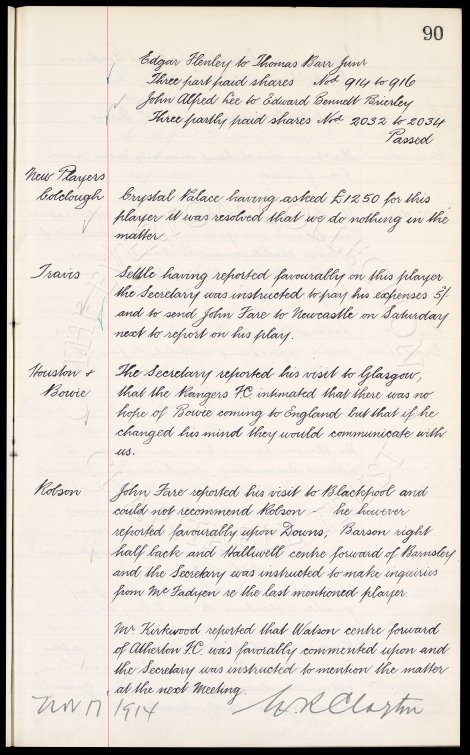 90
Edgar Henley to Thomas Barr Junr
Three part paid shares Nos 914 to 916
John Alfred Lee to Edward Bennett Brierley
Three partly paid shares Nos 2032 to 2034
Passed
New Players
Colclough Crystal Palace having asked £1250 for this
player it was resolved that we do nothing in the
matter
Travis Settle having reported favourably on this player
the Secretary was instructed to pay his expenses 5/-
and to send John Fare to Newcastle on Saturday
next to report on his play.
Houston + The Secretary reported his visit to Glasgow,
Bowie that the Rangers F.C. intimated that there was no
hope of Bowie coming to England but that if he
changed his mind they would communicate with
us.
Robson John Fare reported his visit to Blackpool and
could not recommend Robson - he however
reported favourably upon Downs, Barson right
half back and Halliwell centre forward of Barnsley
and the Secretary was instructed to make inquiries
from Mc Fadyen re the last mentioned player.
Mr Kirkwood reported that Watson centre forward
of Atherton F.C. was favorably commented upon and
the Secretary was instructed to mention the matter
at the next Meeting.
Nov 17 1914 W R Clayton